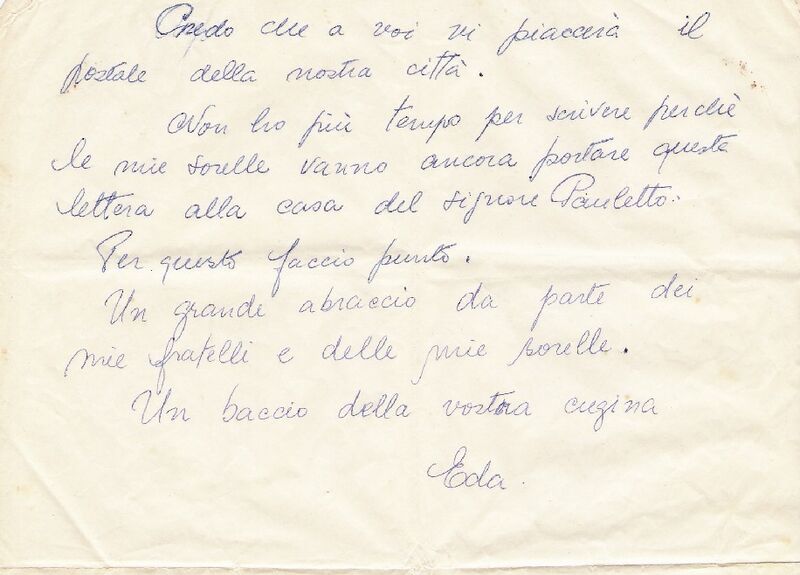 Credo che a voi vi piaccerà il
postale della nostra città.
Non ho più tempo per scrivere perchè
le mie sorelle vanno ancora portare questa
lettera alla casa del signore Pauletto.
Per questo faccio punto.
Un grande abraccio da parte dei
mie fratelli e delle mie sorelle.
Un baccio della vostra cugina
Eda.